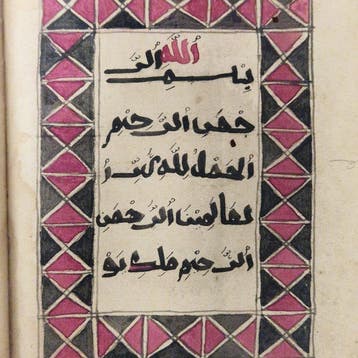 بسم الله الر
حمن الرحيم
الحمد لله رب ا
لعالمين الرحمن
الرحيم ملك يو